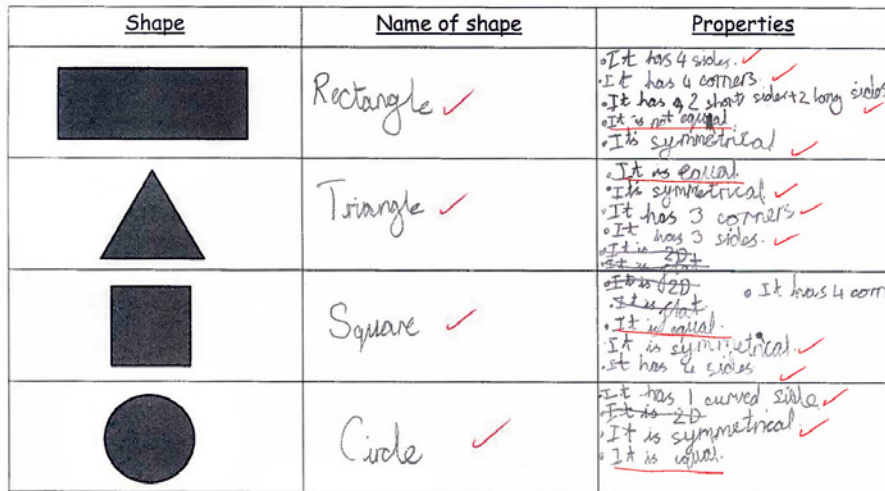 Shape Name of shape Properties
Rectangle
• It has 4 sides.
• It has 4 corners.
• It has 2 short sides + 2 long sides
• It is not equal
• It is symmetrical
Triangle
• It is equal
• It is symmetrical
• It has 3 corners
• It has 3 sides.
• It is 2D
• It is flat
Square
• It is 2D
• It has 4 corn
• It is flat
• It is equal.
It is symmetrical.
• it has 4 sides
Circle
• It has 1 curved side
• It is 2D
• It is symmetrical.
• It is equal.